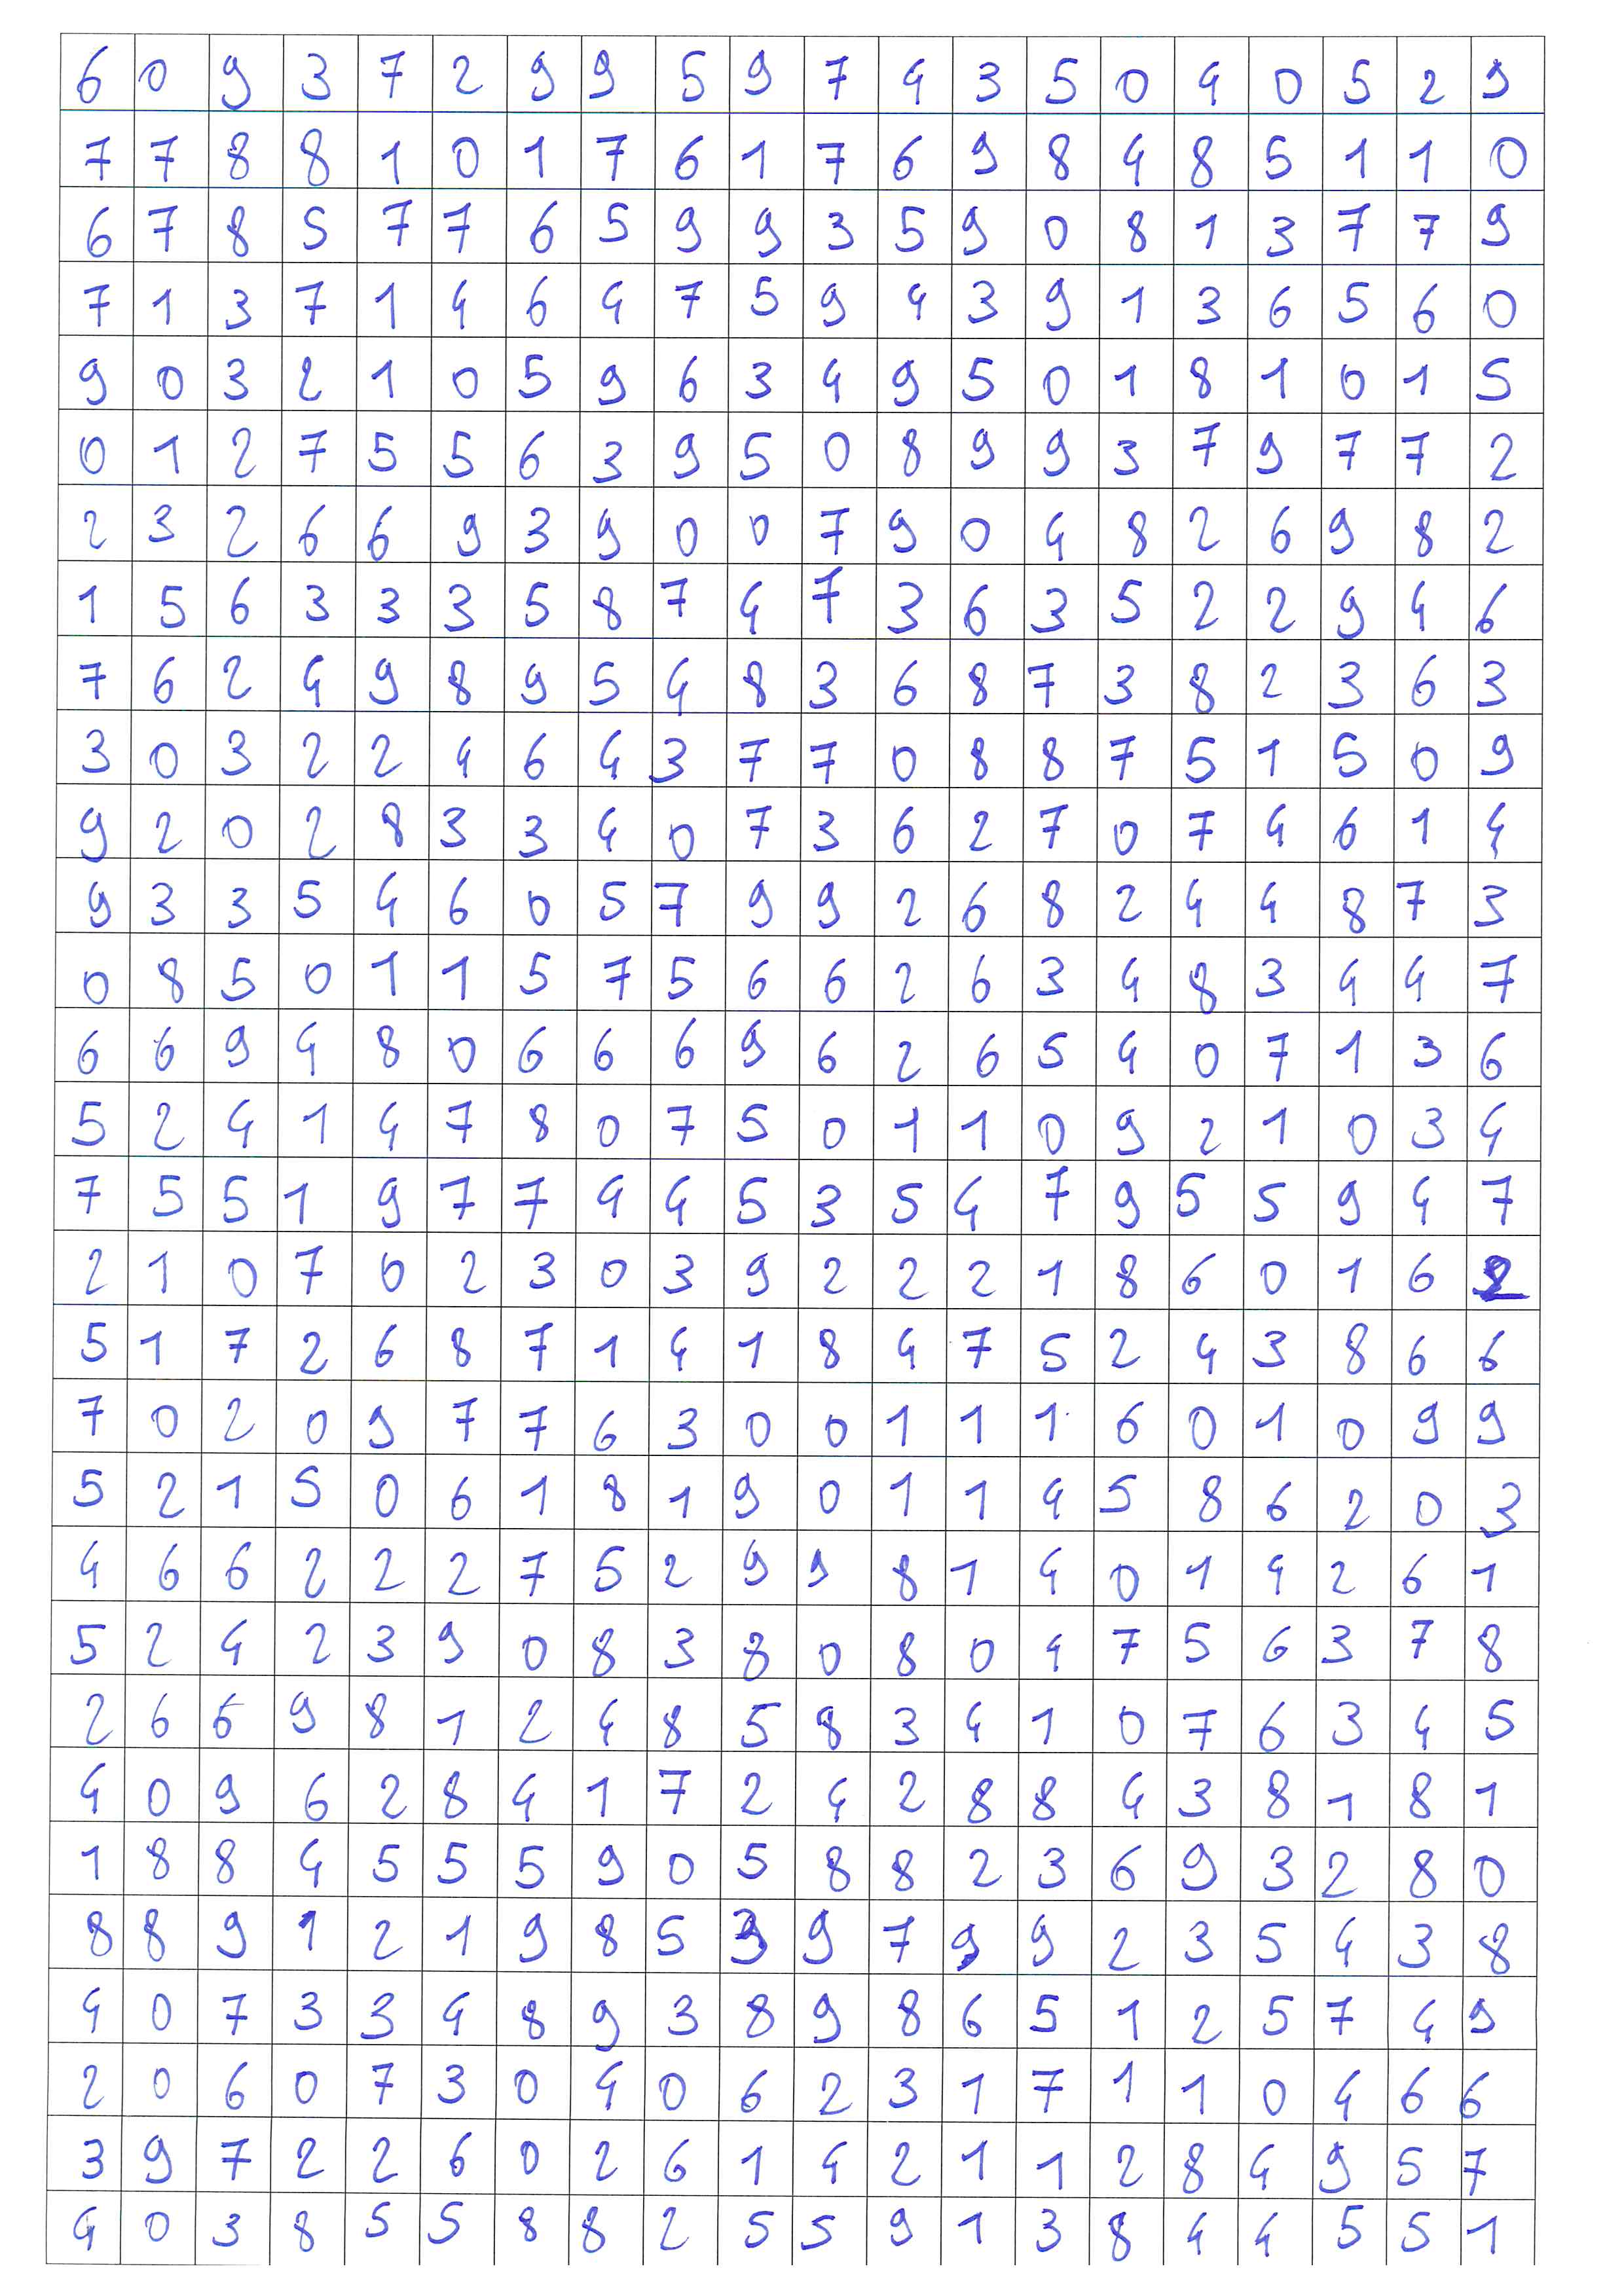 6 0 9 3 7 2 9 9 5 9 7 4 3 5 0 4 0 5 2 9
7 7 8 8 1 0 1 7 6 1 7 6 9 8 4 8 5 1 1 0
6 7 8 5 7 7 6 5 9 9 3 5 9 0 8 1 3 7 7 9
7 1 3 7 1 4 6 4 7 5 9 4 3 9 1 3 6 5 6 0
9 0 3 2 1 0 5 9 6 3 4 9 5 0 1 8 1 0 1 5
0 1 2 7 5 5 6 3 9 5 0 8 9 9 3 7 9 7 7 2
2 3 2 6 6 9 3 9 0 0 7 9 0 4 8 2 6 9 8 2
1 5 6 3 3 3 5 8 7 4 7 3 6 3 5 2 2 9 4 6
7 6 2 4 9 8 9 5 4 8 3 6 8 7 3 8 2 3 6 3
3 0 3 2 2 4 6 4 3 7 7 0 8 8 7 5 1 5 0 9
9 2 0 2 8 3 3 4 0 7 3 6 2 7 0 7 4 6 1 4
9 3 3 5 4 6 0 5 7 9 9 2 6 8 2 4 4 8 7 3
0 8 5 0 1 1 5 7 5 6 6 2 6 3 4 8 3 4 4 7
6 6 9 4 8 0 6 6 6 9 6 2 6 5 4 0 7 1 3 6
5 2 4 1 4 7 8 0 7 5 0 1 1 0 9 2 1 0 3 4
7 5 5 1 9 7 7 4 4 5 3 5 4 7 9 5 5 9 4 7
2 1 0 7 0 2 3 0 3 9 2 2 2 1 8 6 0 1 6 2
5 1 7 2 6 8 7 1 4 1 8 4 7 5 2 4 3 8 6 6
7 0 2 0 9 7 7 6 3 0 0 1 1 1 6 0 1 0 9 9
5 2 1 5 0 6 1 8 1 9 0 1 1 4 5 8 6 2 0 3
4 6 6 2 2 2 7 5 2 9 9 8 1 4 0 1 4 2 6 1
5 2 4 2 3 9 0 8 3 8 0 8 0 4 7 5 6 3 7 8
2 6 6 9 8 1 2 4 8 5 8 3 4 1 0 7 6 3 4 5
4 0 9 6 2 8 4 1 7 2 4 2 8 8 4 3 8 1 8 1
1 8 8 4 5 5 5 9 0 5 8 8 2 3 6 9 3 2 8 0
8 8 9 1 2 1 9 8 5 9 7 9 9 2 3 5 4 3 8
4 0 7 3 3 4 8 9 3 8 9 8 6 5 1 2 5 7 4 9
2 0 6 0 7 3 0 4 0 6 2 3 1 7 1 1 0 4 6 6
3 9 7 2 2 6 0 2 6 1 4 2 1 1 2 8 4 9 5 7
4 0 3 8 5 5 8 8 2 5 5 9 1 3 8 4 4 5 5 1